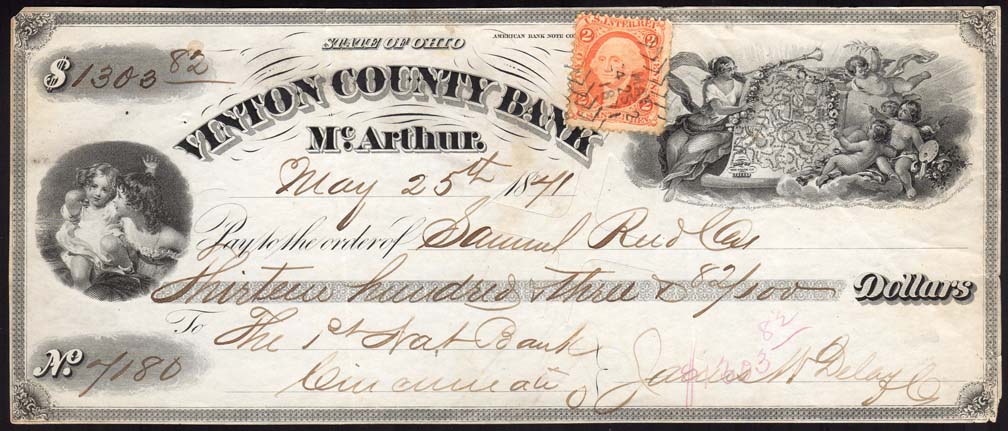 STATE OF OHIO
AMERICAN BANK NOTE CO
$1303 82
U.S. INTER. REV.
2 2
2 2
VINTON COUNTY BANK
Mc. Arthur.
May 25th 1871
Pay to the order of Samuel Reed Cas
Thirteen hundred & three & 82/100 Dollars
To The 1st Nat Bank
No. 7180 Cincinnati O James W Delay C